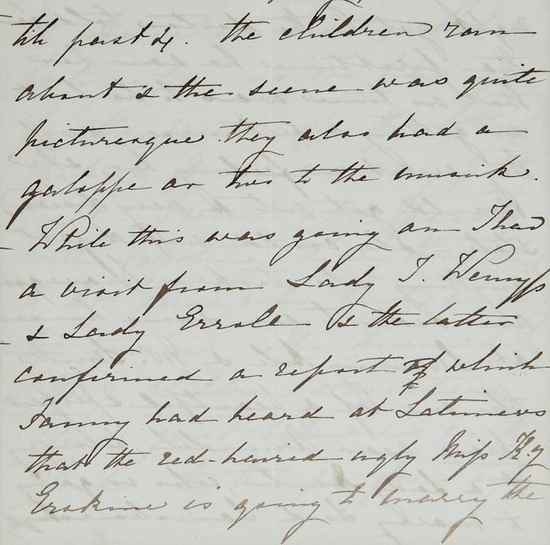 till past 4. the children ran
about & the scene was quite
picturesque they also had a
galoppe or two to the musick.
- While this was going on I had
a visit from Lady J. Wemyss
- & Lady Erroll & the latter
confirmed a report of which
Fanny had heard at Latimers
that the red-haired ugly Miss K.y
Erskine is going to marry the